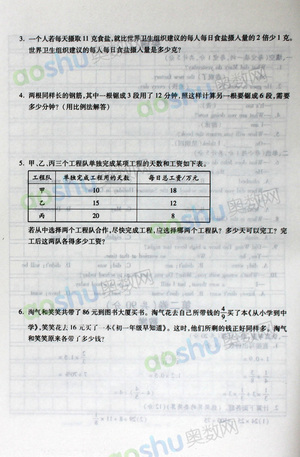 3. 一个人若每天摄取11克食盐,就比世界卫生组织建议的每人每日食盐摄入量的2倍少1克。
世界卫生组织建议的每人每日食盐摄入量是多少克?
4. 两根同样长的钢筋,其中一根锯成3段用了12分钟,照这样计算另一根要锯成6段,需要
多少分钟?(用比例法解答)
5. 甲、乙、丙三个工程队单独完成某项工程的天数和工资如下表。
工程队 单独完成工程所用的天数 每日总工资/万元
甲 10 18
乙 15 12
丙 20 8
若从中选择两个工程队合作,尽快完成工程,应选择哪两个工程队?多少天可以完工?完
工后这两队各得多少工资?
6. 淘气和笑笑共带了86元到图书大厦买书。淘气花去自己所带钱的4/9买了本《从小学到中
学》,笑笑花去16元买了一本《初一年级早知道》。这时,他们所剩的钱正好同样多。淘气
和笑笑原来各带了多少钱?
aoshu 奥数网
aoshu 奥数网
aoshu 奥数网